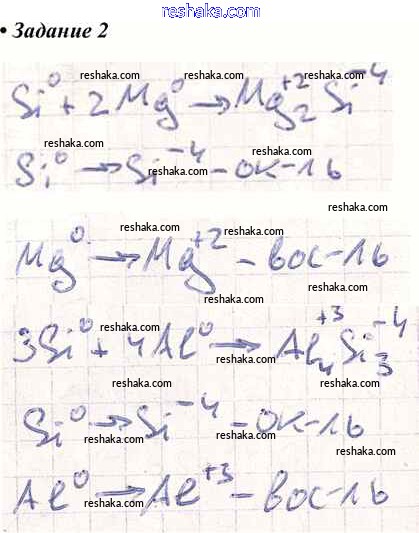 reshaka.com
• Задание 2
reshaka.com reshaka.com reshaka.com
Si⁰ + 2Mg⁰ → Mg₂⁺²Si⁻⁴
reshaka.com reshaka.com
reshaka.com
Si⁰ → Si⁻⁴ - ок-ль
reshaka.com
reshaka.com
reshaka.com
reshaka.com reshaka.com
Mg⁰ → Mg⁺² - вос-ль
reshaka.com
reshaka.com reshaka.com
3Si⁰ + 4Al⁰ → Al₄⁺³Si₃⁻⁴
reshaka.com
reshaka.com reshaka.com
Si⁰ → Si⁻⁴ - ок-ль
reshaka.com reshaka.com
reshaka.com
Al⁰ → Al⁺³ - вос-ль
reshaka.com reshaka.com